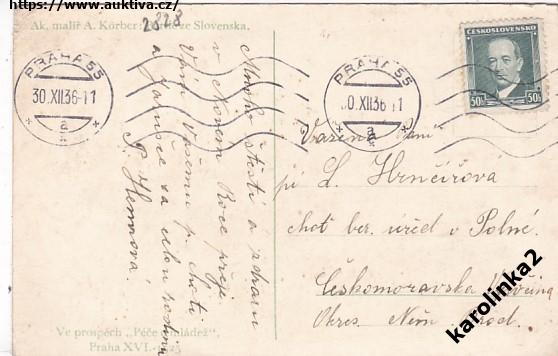 https://www.auktiva.cz/
Ak. malíř A. Körber: ze Slovenska.
2828
ČESKOSLOVENSKO
50h 50h
PRAHA 55
30.XII.36-11
a
PRAHA 55
0.XII.36 11
a
Mnoho štěstí a zdraví
v Novém Roce přeje
Vám Vašemu p. choti
a Jarušce za celou rodinu
Vážená paní
pí L. Hrnčířová
choť ber. úřed v Polné.
Českomoravská
Okres. Něm. Brod.
Ve prospěch „Péče mládež”
Praha XVI.-
karolinka2